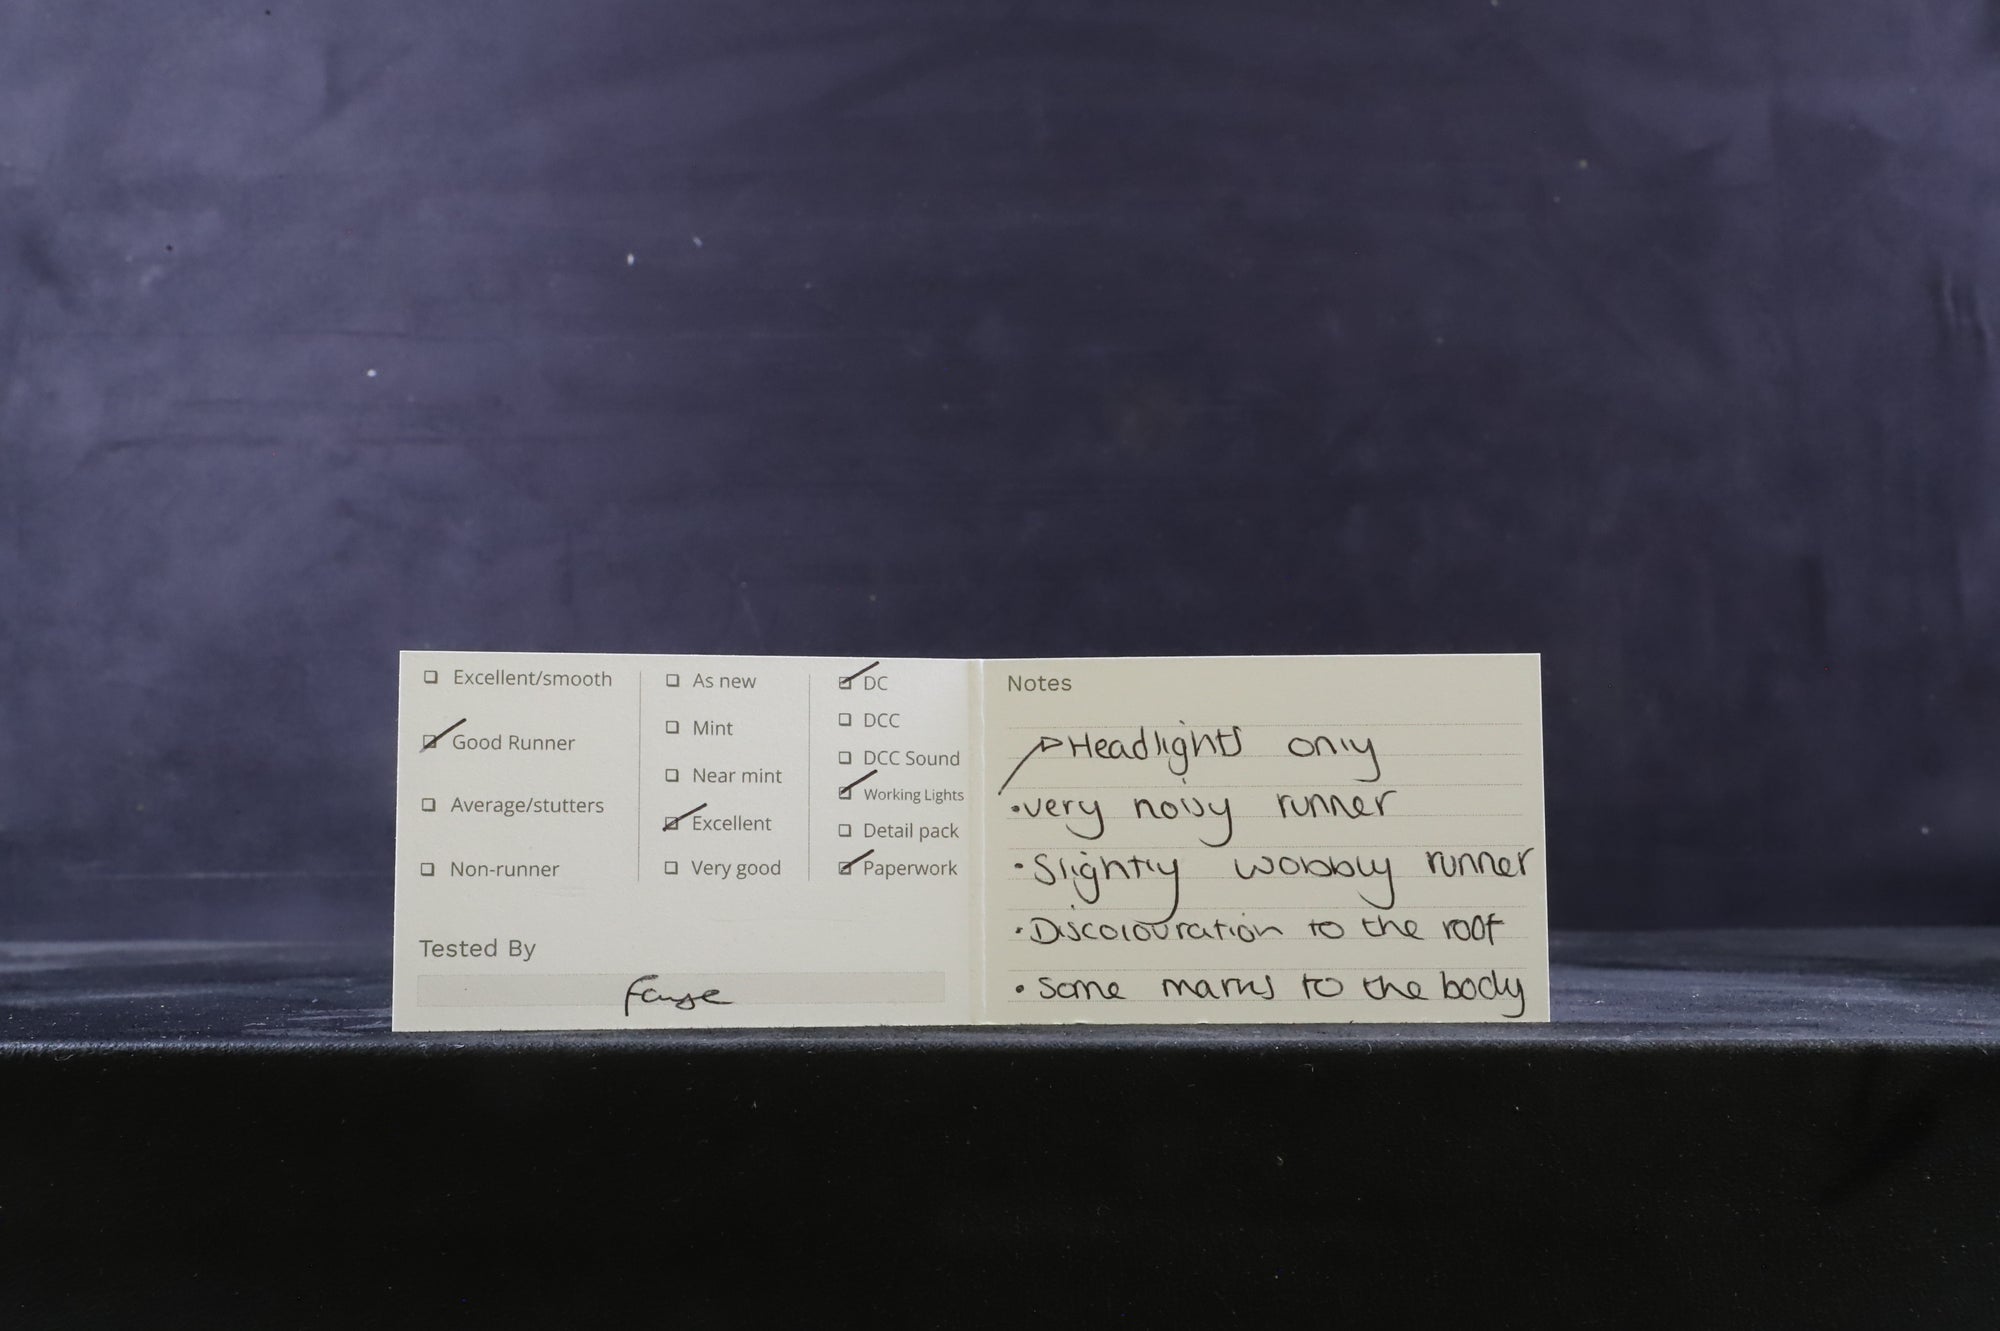 Excellent/smooth
Good Runner
Average/stutters
Non-runner
As new
Mint
Near mint
Excellent
Very good
DC
DCC
DCC Sound
Working Lights
Detail pack
Paperwork
Tested By
Notes
Headlights only
• very noisy runner
• Slightly wobbly runner
• Discolouration to the roof
• Some marks to the body